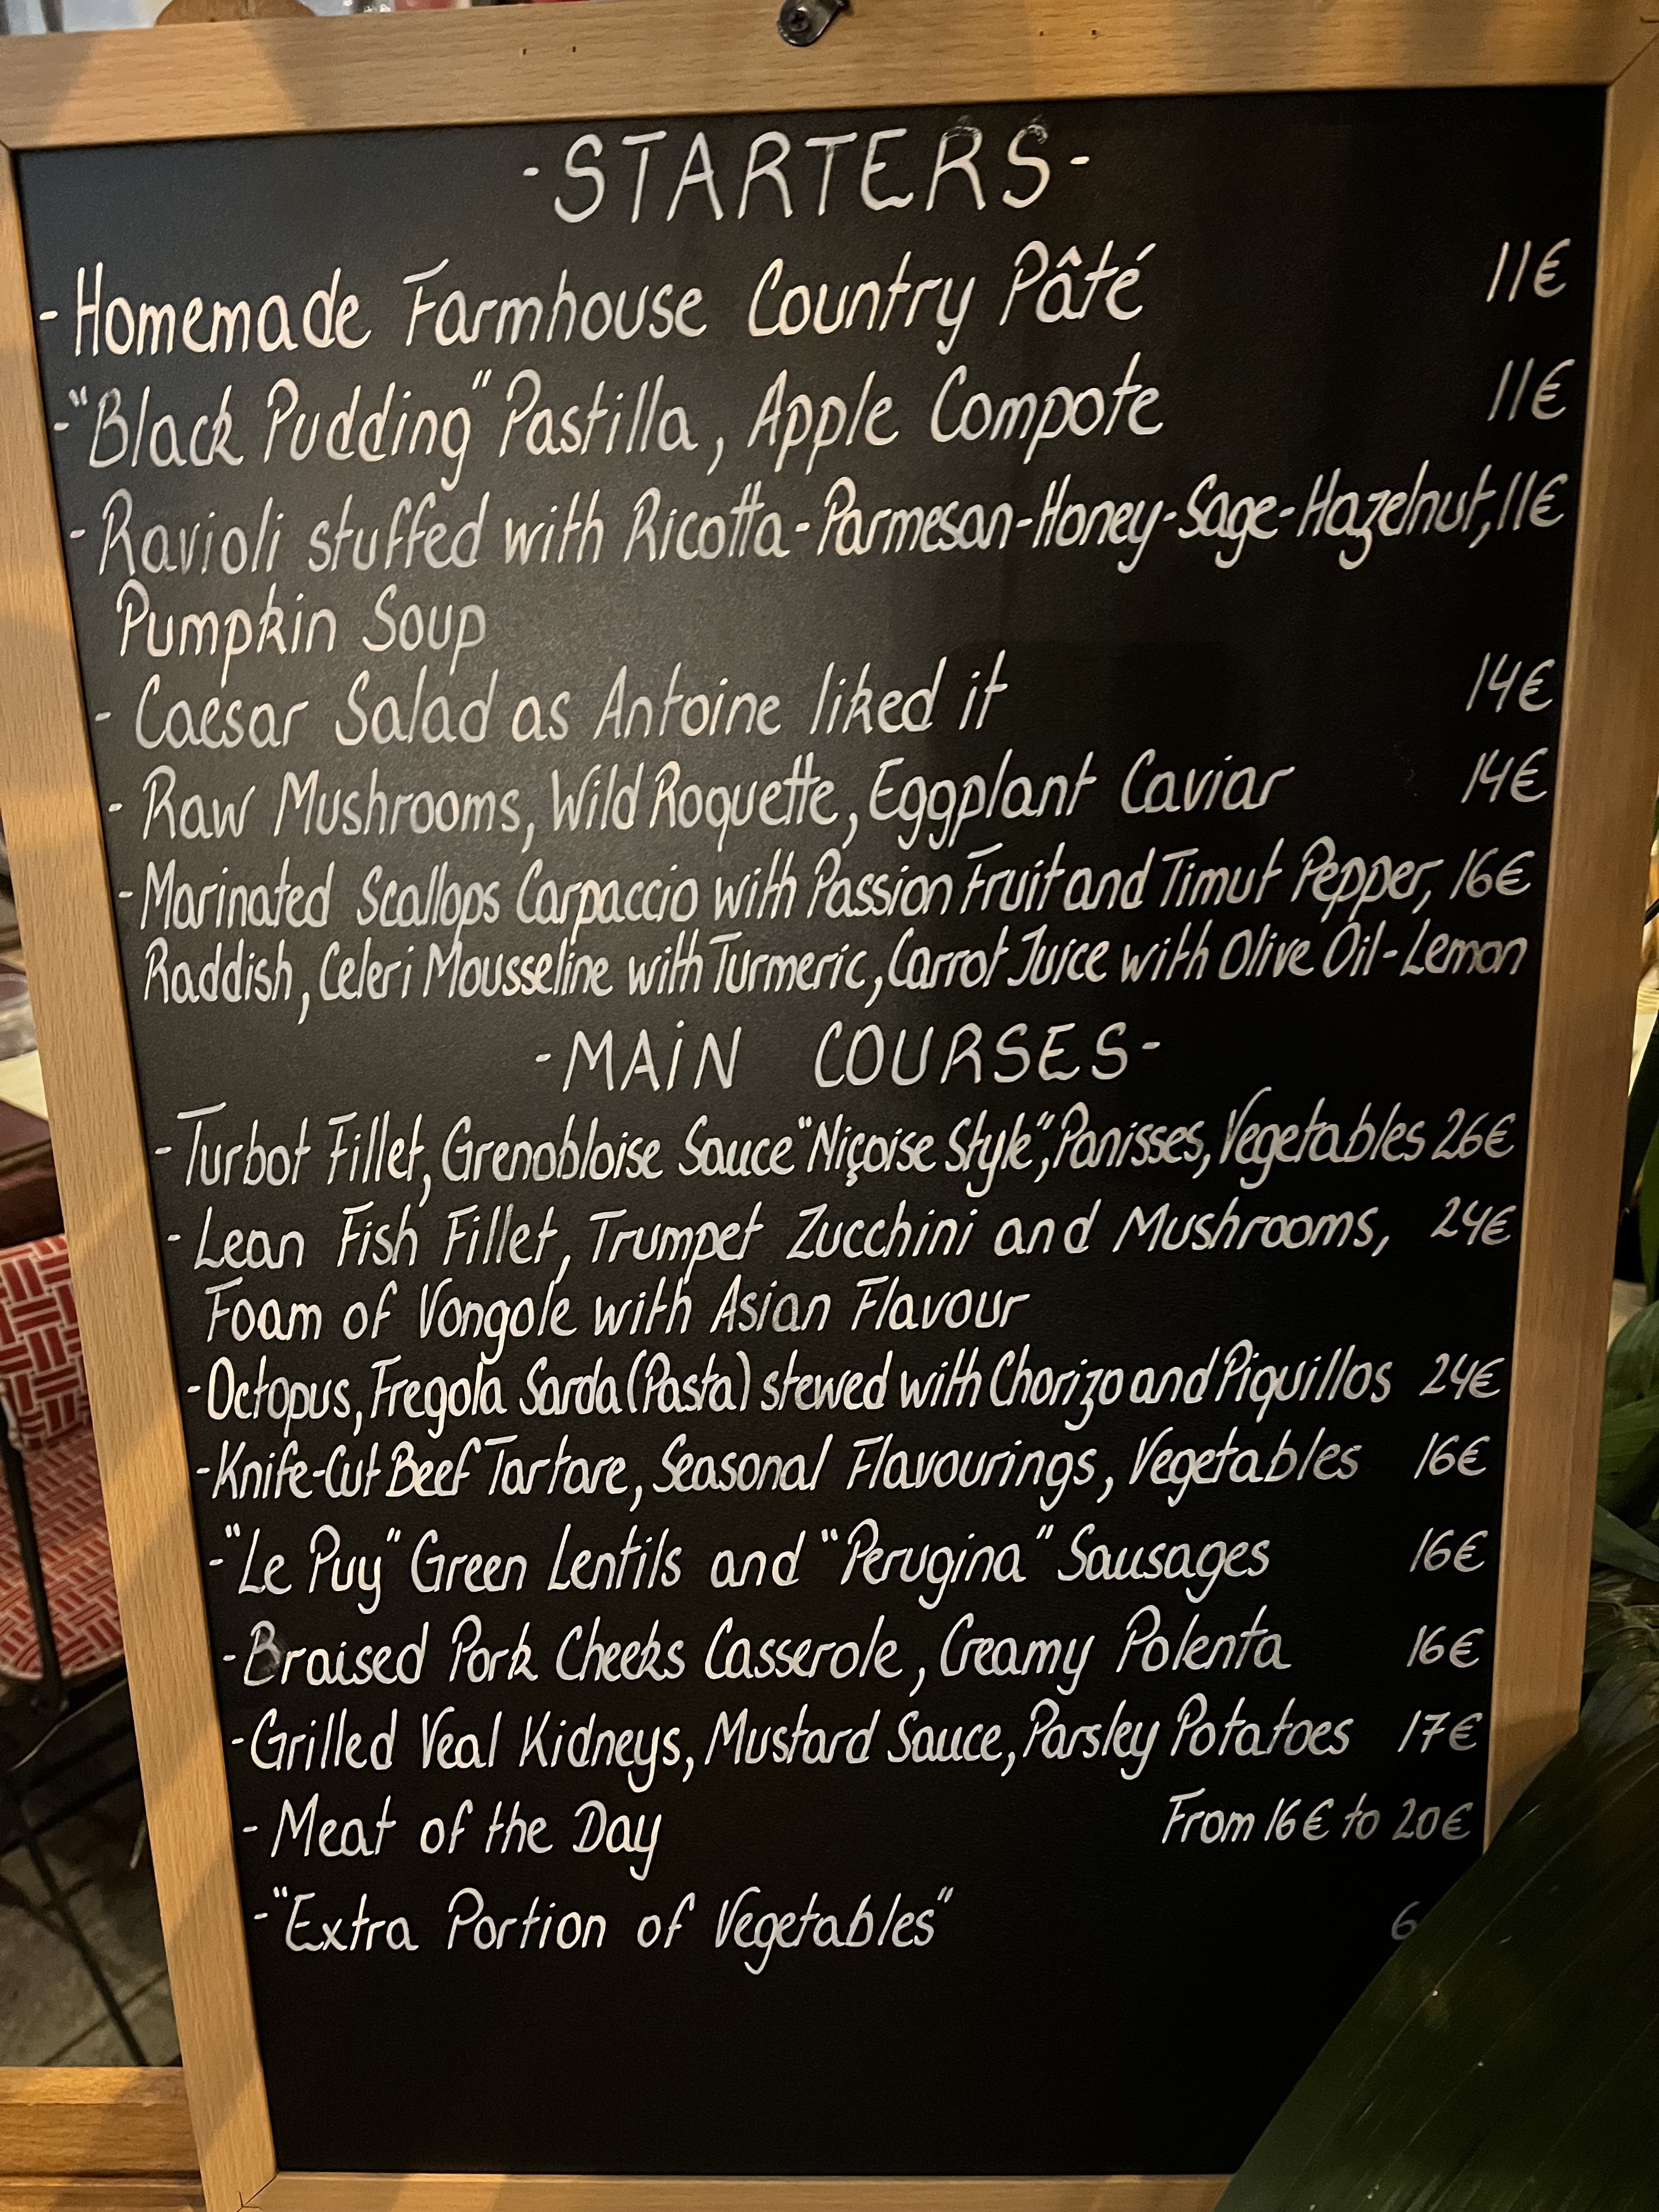 -STARTERS-
- Homemade Farmhouse Country Pâté 11€
- "Black Pudding" Pastilla, Apple Compote 11€
- Ravioli stuffed with Ricotta-Parmesan-Honey-Sage-Hazelnut, 11€
Pumpkin Soup
- Caesar Salad as Antoine liked it 14€
- Raw Mushrooms, Wild Roquette, Eggplant Caviar 14€
- Marinated Scallops Carpaccio with Passion Fruit and Timut Pepper, 16€
Raddish, Celeri Mousseline with Turmeric, Carrot Juice with Olive Oil-Lemon
-MAIN COURSES-
- Turbot Fillet, Grenobloise Sauce "Niçoise Style", Panisses, Vegetables 26€
- Lean Fish Fillet, Trumpet Zucchini and Mushrooms, 24€
Foam of Vongole with Asian Flavour
- Octopus, Fregola Sarda (Pasta) stewed with Chorizo and Piquillos 24€
- Knife-Cut Beef Tartare, Seasonal Flavourings, Vegetables 16€
- "Le Puy" Green Lentils and "Perugina" Sausages 16€
- Braised Pork Cheeks Casserole, Creamy Polenta 16€
- Grilled Veal Kidneys, Mustard Sauce, Parsley Potatoes 17€
- Meat of the Day From 16€ to 20€
- "Extra Portion of Vegetables" 6